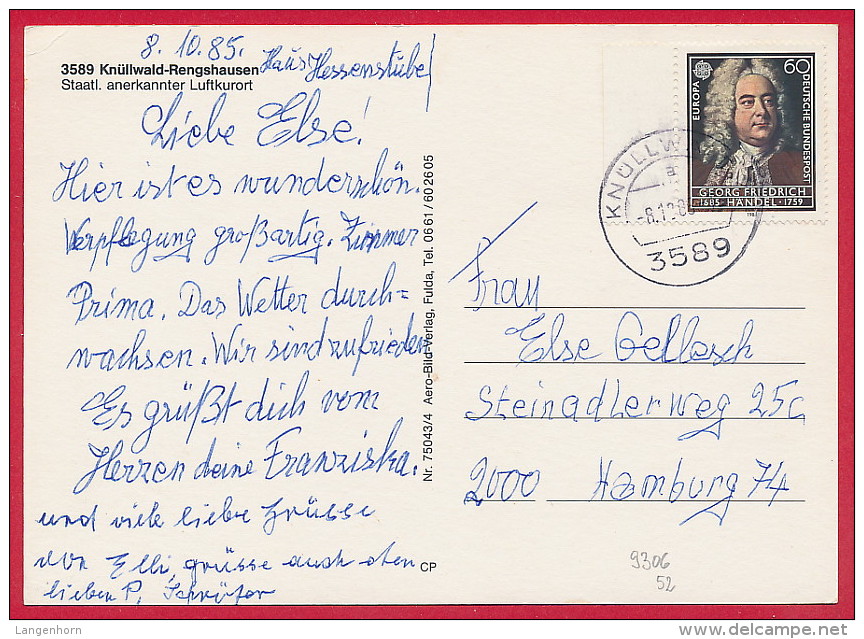 8.10.85. Haus Hessenstube
3589 Knüllwald-Rengshausen
Staatl. anerkannter Luftkurort
Liebe Else!
Hier ist es wunderschön.
Verpflegung großartig. Zimmer
Prima. Das Wetter durch=
wachsen. Wir sind zufrieden
Es grüßt dich vom
Herzen deine Franziska.
und viele liebe Grüsse
von Elli, grüsse auch den
lieben P.
CP
Nr. 75043/4 Aero-Bild-Verlag, Fulda, Tel. 0661/602605
EUROPA
60
DEUTSCHE BUNDESPOST
GEORG FRIEDRICH
1685 HÄNDEL 1759
KNÜLLW
a
-8.10.85
3589
Frau
Else Gellesch
Steinadlerweg 25c
2000 Hamburg 74
9306
52
Langenhorn
www.delcampe.net